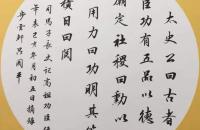 太史公曰古者
臣功有五品以德
廟定社稷曰勳以
用力曰功明其等
積日曰閱
司馬子長史記高祖功臣